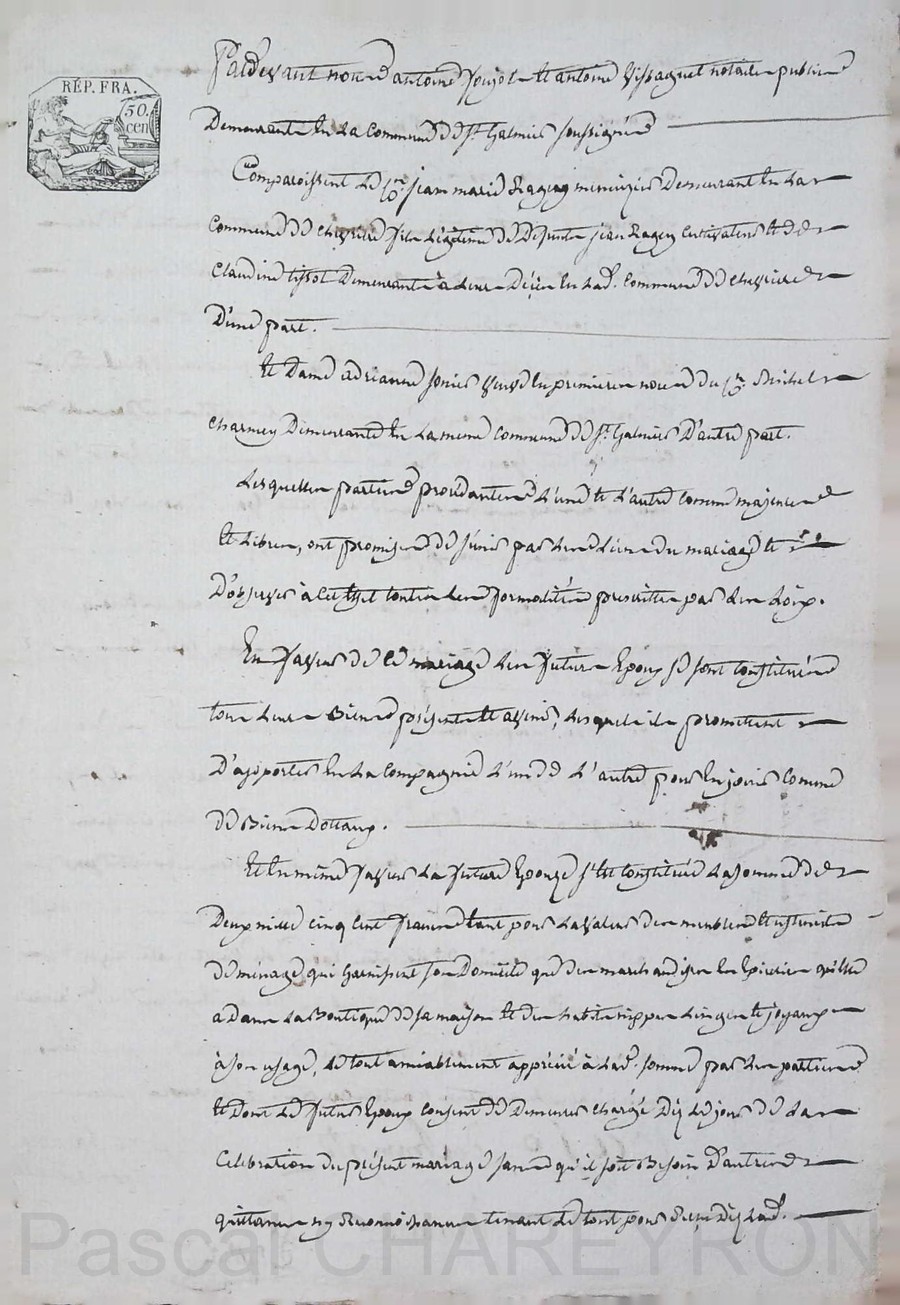 RÉP. FRA.
50. cen
Pardevant nous antoine et antoine notaires publics
Demeurants en La Commune de St. Galmier soussignés
Comparoissent Le Cen. jean marie Ragey menuizier Demeurant en La
Commune de Chevrières fils Légitime de Defunts jean Ragey cultivateur et de
Claudine tissot Demeurants à Leurs Décès en Lad. Commune de Chevrieres
D'une part.
Et Dame adrianne veuve en premieres noces du Cen. Michel
Charmey Demeurante en La meme Commune de St. Galmier D'autre part.
Lesquelles parties procedantes L'une et L'autre comme majeures
et Libres, ont promis de s'unir par Les Liens du mariage et
D'observer à cet effet toutes Les formalités prescrittes par Les Loix.
En faveur de ce mariage Les futurs Epoux se sont constitués
tous Leurs Biens présents et avenir, Lesquels ils promettent
D'apporter en La Compagnie L'un de L'autre pour en jouir comme
de Biens Dottaux.
Et en meme faveur La future Epouze s'est constituée La somme de
Deux mille cinq cent francs tant pour La valeur des meubles et ustensiles
de ménage qui garnissent son Domicile que des marchandises en Epicerie qu'elle
a Dans La Boutique de sa maison et des habits nippes Linges et joyaux
à son usage, Le tout amiablement apprécié à Lad. somme par Les parties
et Dont Le futur Epoux consent de Demeurer chargé Dez Le jour de La
Celebration du présent mariage sans qu'il soit Besoin D'autres
quittance ny Reconnoissance tenant Le tout pour Reçu Dez Lad.
Pascal CHAREYRON